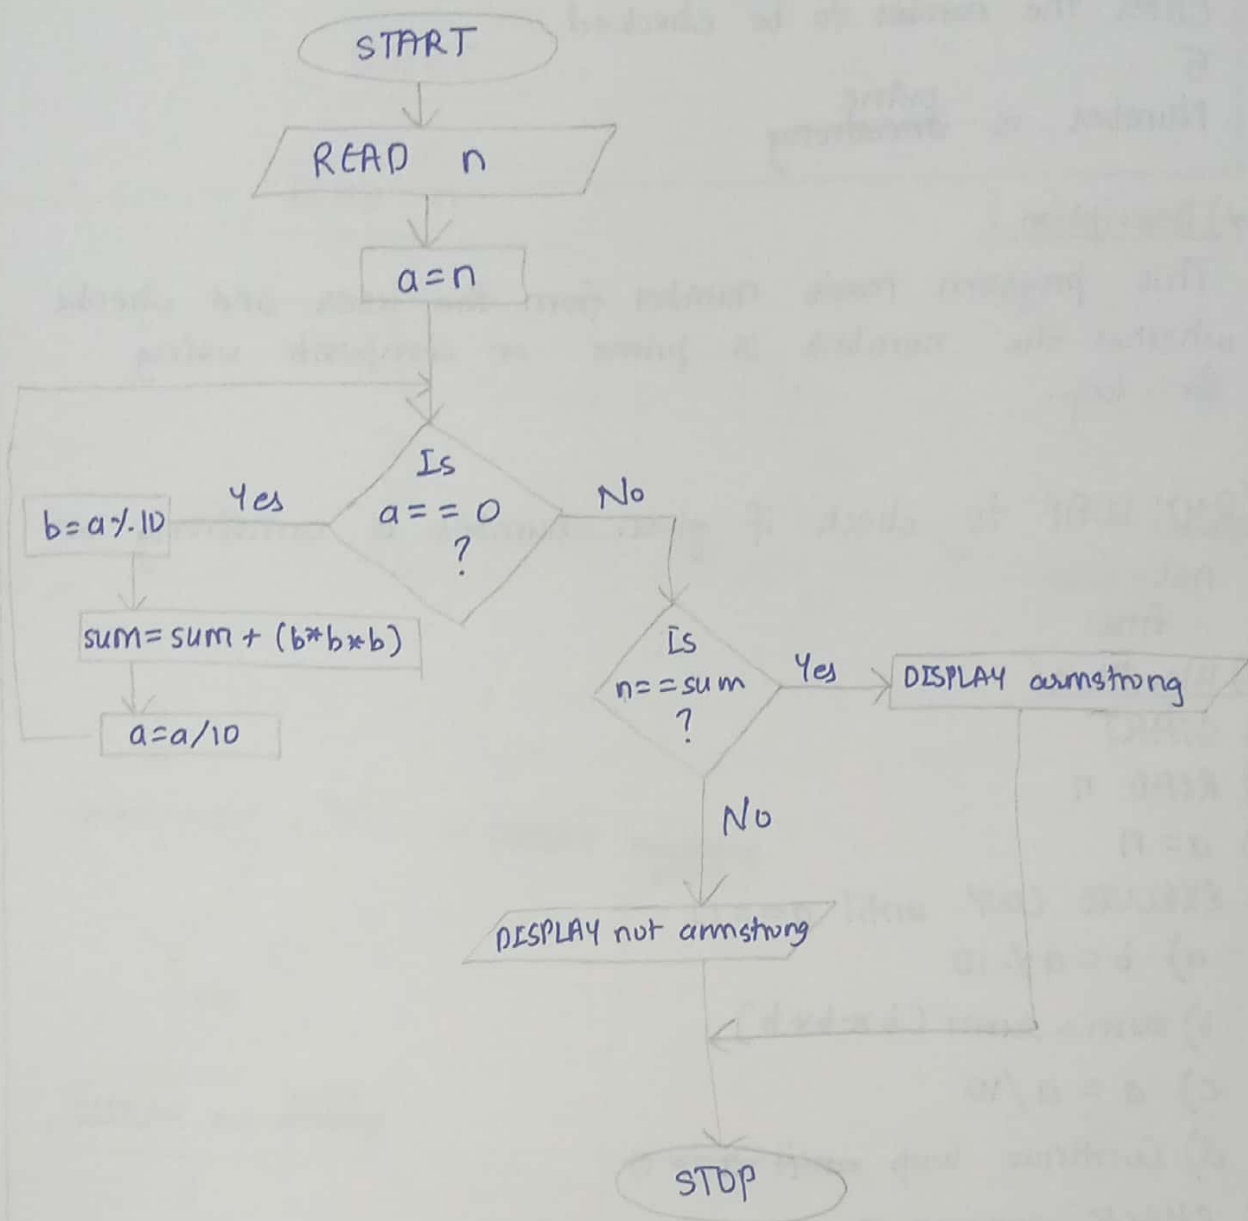 START
READ n
a=n
Is
a==0
?
Yes
No
b=a%10
sum=sum+(b*b*b)
a=a/10
Is
n==sum
?
Yes
DISPLAY armstrong
No
DISPLAY not armstrong
STOP